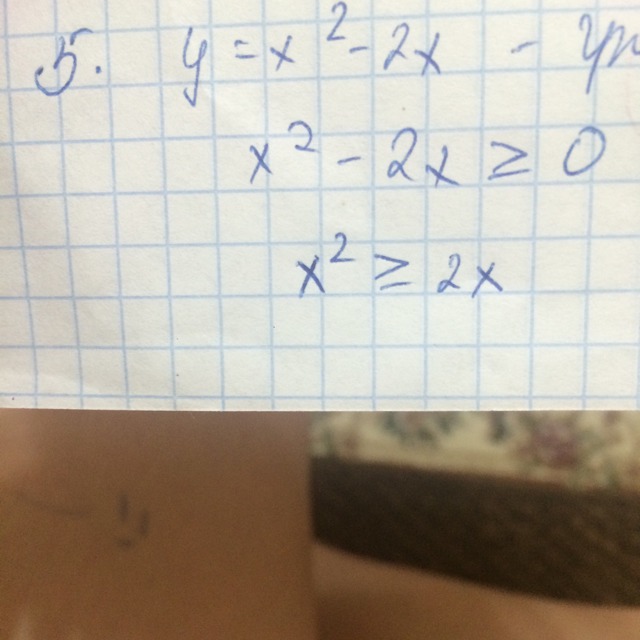 5. y = x² - 2x -
x² - 2x ≥ 0
x² ≥ 2x